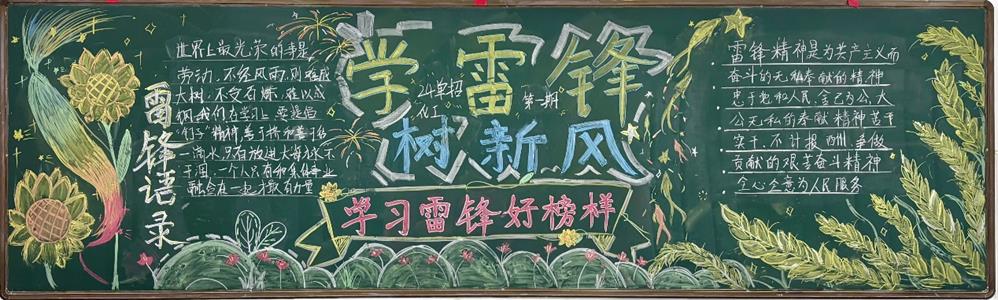 学雷锋
24单招
化工
第一期
树新风
学习雷锋好榜样
雷锋语录
世界上最光荣的事是
劳动,不经风雨,则难成
大树,不受百炼,难以成
钢我们在学习上,要提倡
"钉子"精神,善于挤和善于钻
一滴水只有放进大海才永不
干涸,一个人只有和集体事业
融合在一起才最有力量
雷锋精神是为共产主义而
奋斗的无私奉献的精神
忠于党和人民,舍己为公,大
公无私的奉献精神苦干
实干,不计报酬,争做
贡献的艰苦奋斗精神
全心全意为人民服务